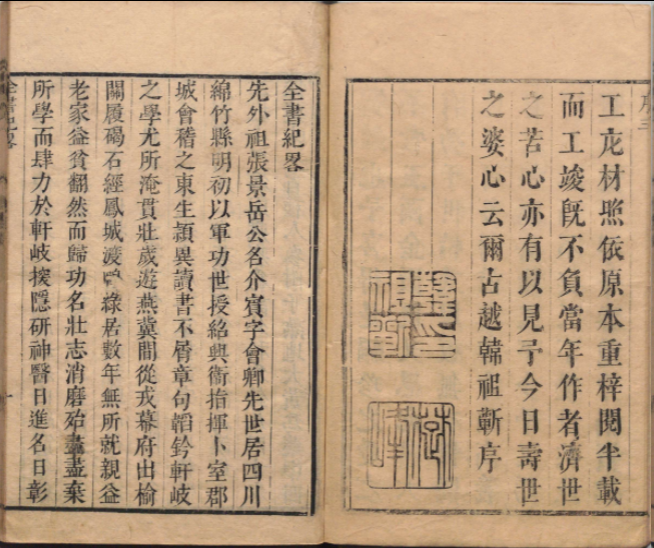 工庀材照依原本重梓閱半載
而工竣旣不負當年作者濟世
之苦心亦有以見予今日壽世
之婆心云爾古越韓祖靳序
全書紀畧
先外祖張景岳公名介賓字會卿先世居四川
綿竹縣明初以軍功世授紹興衞指揮卜室郡
城會稽之東生頴異讀書不屑章句韜鈐軒岐
之學尤所淹貫壯歲遊燕冀間從戎幕府出榆
關履碣石經鳳城渡鴨綠居數年無所就親益
老家益貧翻然而歸功名壯志消磨殆盡盡棄
所學而肆力於軒岐探隱研神醫日進名日彰